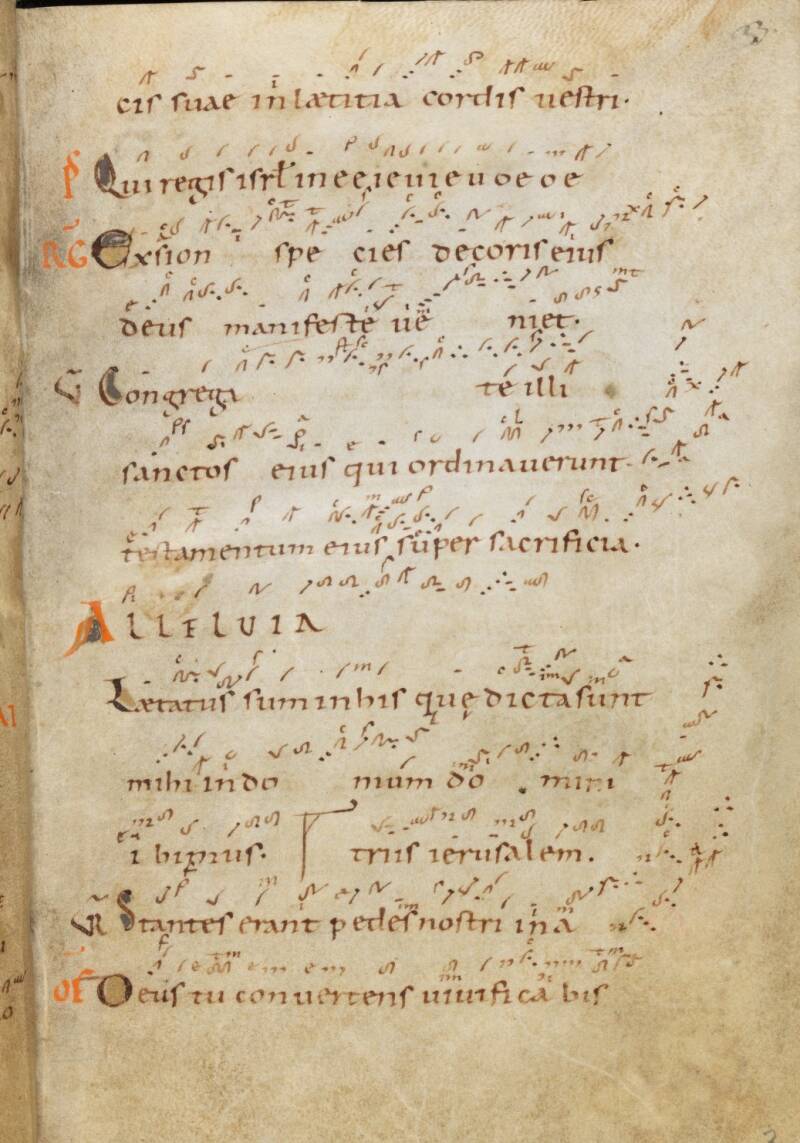 cis suae in lætitia cordis uestri.
P Qui regis isrl in e e, ie ui e u o e o e
RG Exsion spe cies decoris eius
deus manifeste ue niet.
V Congrega te illi
sanctos eius qui ordinauerunt
testamentum eius super sacrificia.
ALLELUIA
Lætatus sum in his quę dicta sunt
mihi in do mum do mini
ibimus. triis ierusalem.
VR Stantes erant pedes nostri in a
OF Deus tu conuertens uiuifica bis